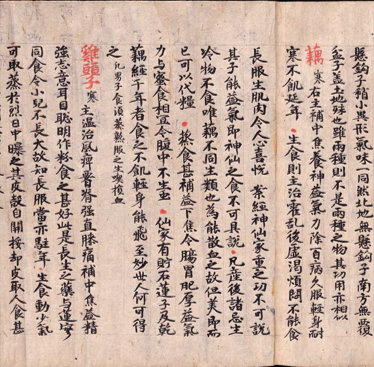 懸鉤子稍小異形氣味一同然北地無懸鉤子南方無覆
盆子蓋土地殊也雖兩種則不是兩種之物其功用亦相似
藕 寒 右主補中焦養神益氣力除百病久服輕身耐
寒不飢延年 生食則主治霍亂後虛渴煩悶不能食
長服生肌肉令人心喜悅 案經神仙家重之功不可說
其子能益氣即神仙之食不可具說 凡產後諸忌生
冷物不食唯藕不同生類也為能散血之故但美即而
已可以代糧 蒸食甚補益下焦令腸胃肥厚益氣
力与蜜食相宜令腹中不生虫 仙家有貯石蓮子及乾
藕經千年者食之不飢輕身能飛至妙世人何可得
之 凡男子食須蒸熟服之生喫損血
雞頭子 寒 主溫治風痺腰脊強直膝痛補中焦益精
強志意耳目聰明作粉食之甚好此是長生之藥与蓮實
同食令小兒不長大故知長服當亦駐年 生食動少氣
可取蒸於烈日中曝之其皮殼自開挼却皮取人食甚